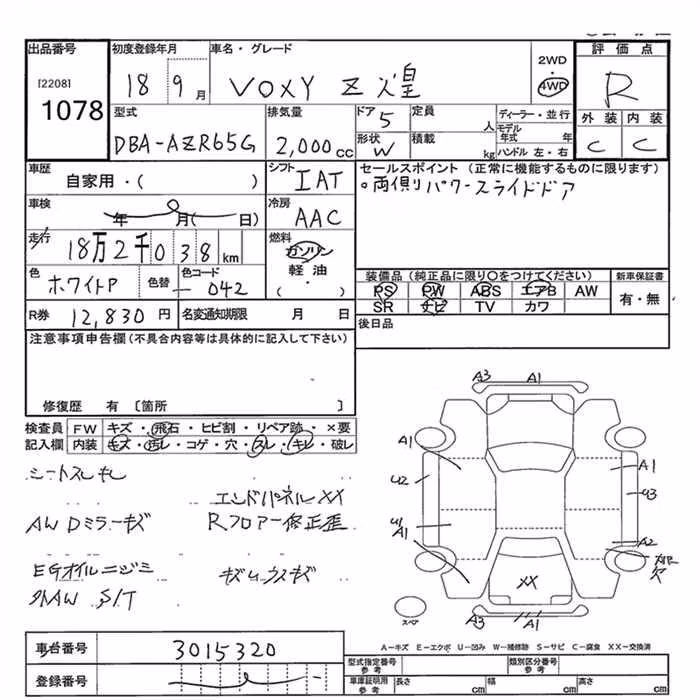 出品番号 初度登録年月 車名・グレード 評価点
[2208] 1078 18 9月 VOXY Z 煌 2WD 4WD R
型式 排気量 ドア 5 定員 人 ディーラー・並行 外装 内装
DBA-AZR65G 2,000cc 形状 W 積載 kg モデル年式 年 ハンドル 左・右 C C
車歴 自家用・( ) シフト IAT セールスポイント (正常に機能するものに限ります)
。両側りパワースライドドア
車検 年 月( 日) 冷房 AAC
走行 18万2千038km 燃料 ガソリン 軽油 ( ・ )
色 ホワイトP 色替 色コード 042
装備品 (純正品に限り〇をつけてください) 新車保証書
PS PW ABS エアB AW 有・無
SR ナビ TV カワ
R券 12,830円 名変通知期限 月 日 後日品
注意事項申告欄(不具合内容等は具体的に記入して下さい)
修復歴 有 〔箇所 〕
検査員 FW キズ・飛石・ヒビ割・リペア跡・×要
記入欄 内装 キズ・汚レ・コゲ・穴・スレ・キレ・破レ
シートスレキレ
エンドパネルXX
AW Dミラーキズ Rフロアー修正歪
EGオイルニジミ
外AW S/T
A3 A1
A1 A1
U2 U3
U1 A1 A2
欠
XX
A1
スペア
A-キズ E-エクボ U-凹み W-補修跡 S-サビ C-腐食 XX-交換済
車台番号 3015320
登録番号
型式指定番号 参考 類別区分番号 参考
車庫証明用 参考 長さ cm 幅 cm 高さ cm